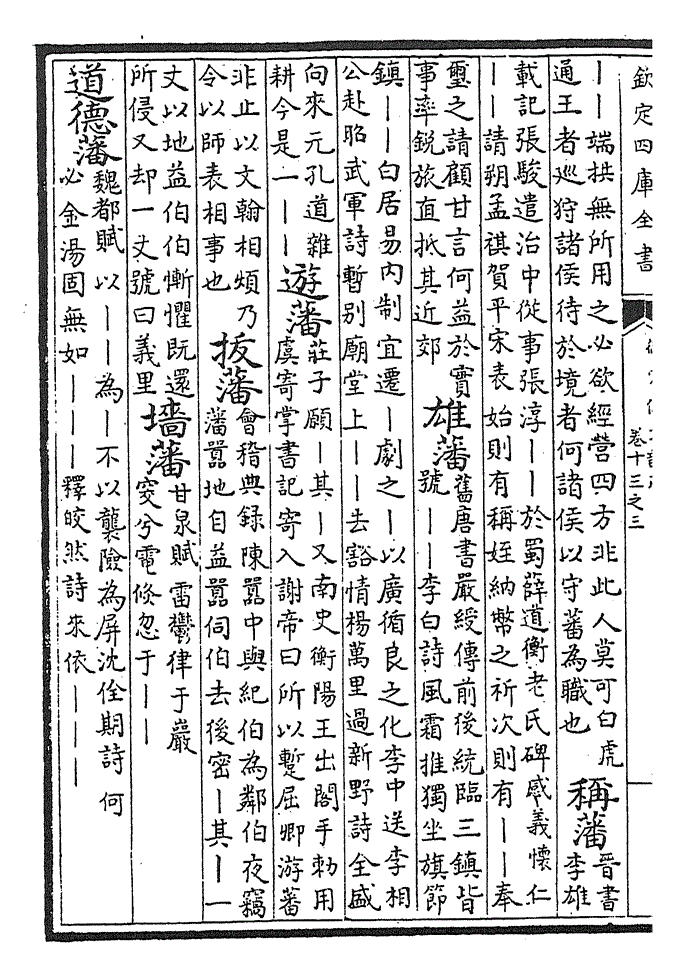 欽定四庫全書
卷十三之三
——端拱無所用之必欲經營四方非此人莫可白虎
通王者巡狩諸侯待於境者何諸侯以守蕃為職也
稱藩
晉書
李雄
載記張駿遣治中從事張淳——於蜀薛道衡老氏碑感義懷仁
——請朔孟祺賀平宋表始則有稱姪納幣之祈次則有——奉
璽之請顧甘言何益於實
事率銳旅直抵其近郊
雄藩
舊唐書嚴綬傳前後統臨三鎮皆
號——李白詩風霜推獨坐旗節
鎮——白居易內制宜遷—劇之—以廣循良之化李中送李相
公赴昭武軍詩暫别廟堂上———去豁情楊萬里過新野詩全盛
向來元孔道雜
耕今是一——
遊藩
莊子願—其—又南史衡陽王出閣手勅用
虞寄掌書記寄入謝帝曰所以蹔屈卿游蕃
非止以文翰相煩乃
令以師表相事也
拔藩
會稽典録陳囂中與紀伯為鄰伯夜竊
藩囂地自益囂伺伯去後密—其—一
丈以地益伯伯慚懼既還
所侵又却一丈號曰義里
墻藩
甘泉賦雷鬱律于巖
窔兮電倏忽于——
道德藩
魏都賦以——為—不以襲險為屏沈佺期詩何
必金湯固無如———釋皎然詩來依———